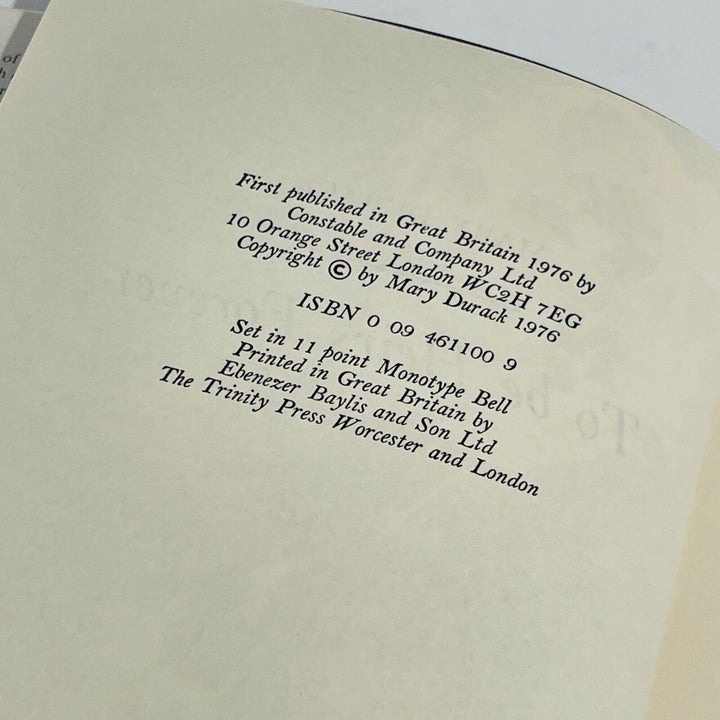 of
First published in Great Britain 1976 by
Constable and Company Ltd
10 Orange Street London WC2H 7EG
Copyright © by Mary Durack 1976
ISBN 0 09 461100 9
Set in 11 point Monotype Bell
Printed in Great Britain by
Ebenezer Baylis and Son Ltd
The Trinity Press Worcester and London